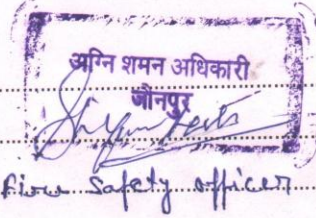 अग्नि शमन अधिकारी
जौनपुर
Fire Safety officer